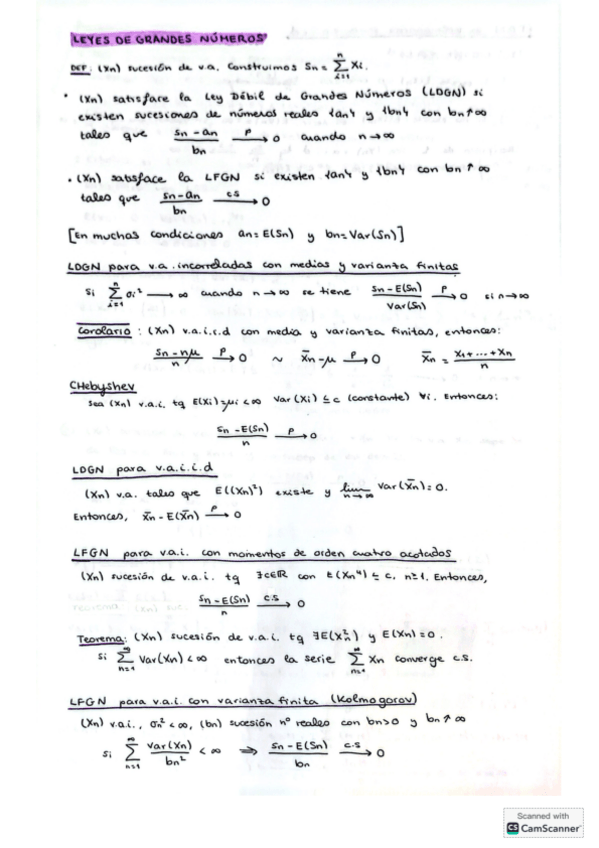 LEYES DE GRANDES NÚMEROS
DEF: (Xn) sucesión de v.a. Construimos Sn = ∑_{i=1}^{n} Xi.
• (Xn) satisfare la Ley Débil de Grandes Números (LDGN) si
existen sucesiones de números reales {an} y {bn} con bn↑∞
tales que (Sn-an)/bn —P→ 0 cuando n→∞
• (Xn) satisface la LFGN si existen {an} y {bn} con bn↑∞
tales que (Sn-an)/bn —c.s→ 0
[En muchas condiciones an=E(Sn) y bn=Var(Sn)]
LDGN para v.a. incorreladas con medias y varianza finitas
Si ∑_{i=1}^{n} σi² → ∞ cuando n→∞ se tiene (Sn-E(Sn))/Var(Sn) —P→ 0 si n→∞
Corolario: (Xn) v.a.i.i.d con media y varianza finitas, entonces:
(Sn-nμ)/n —P→ 0 ~ X̄n-μ —P→ 0 X̄n = (X1+...+Xn)/n
CHebyshev
Sea (Xn) v.a.i. tq E(Xi)=μi<∞ Var(Xi)≤c (constante) ∀i. Entonces:
(Sn-E(Sn))/n —P→ 0
LDGN para v.a.i.i.d
(Xn) v.a. tales que E((Xn)²) existe y lim_{n→∞} Var(X̄n)=0.
Entonces, X̄n-E(X̄n) —P→ 0
LFGN para v.a.i. con momentos de orden cuatro acotados
(Xn) sucesión de v.a.i. tq ∃c∈ℝ con E(Xn⁴)≤c, n≥1. Entonces,
(Sn-E(Sn))/n —c.s→ 0
Teorema: (Xn) sucesión de v.a.i. tq ∃E(Xn²) y E(Xn)=0.
Si ∑_{n=1}^{∞} Var(Xn)<∞ entonces la serie ∑_{n=1}^{∞} Xn converge c.s.
LFGN para v.a.i. con varianza finita (Kolmogorov)
(Xn) v.a.i., σn²<∞, (bn) sucesión nº reales con bn>0 y bn↑∞
Si ∑_{n=1}^{∞} Var(Xn)/bn² < ∞ ⟹ (Sn-E(Sn))/bn —c.s→ 0
Scanned with
CS CamScanner